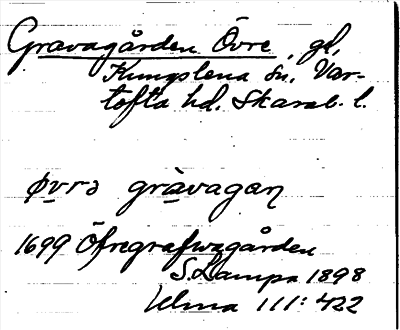 Gravagården Övre, gl,
Kungslena sn, Var-
tofta hd. Skarab. l.
øvrə gràvagaɳ
1699 Öfregrafwagården
S. Lampa 1898
Ulma 111:422